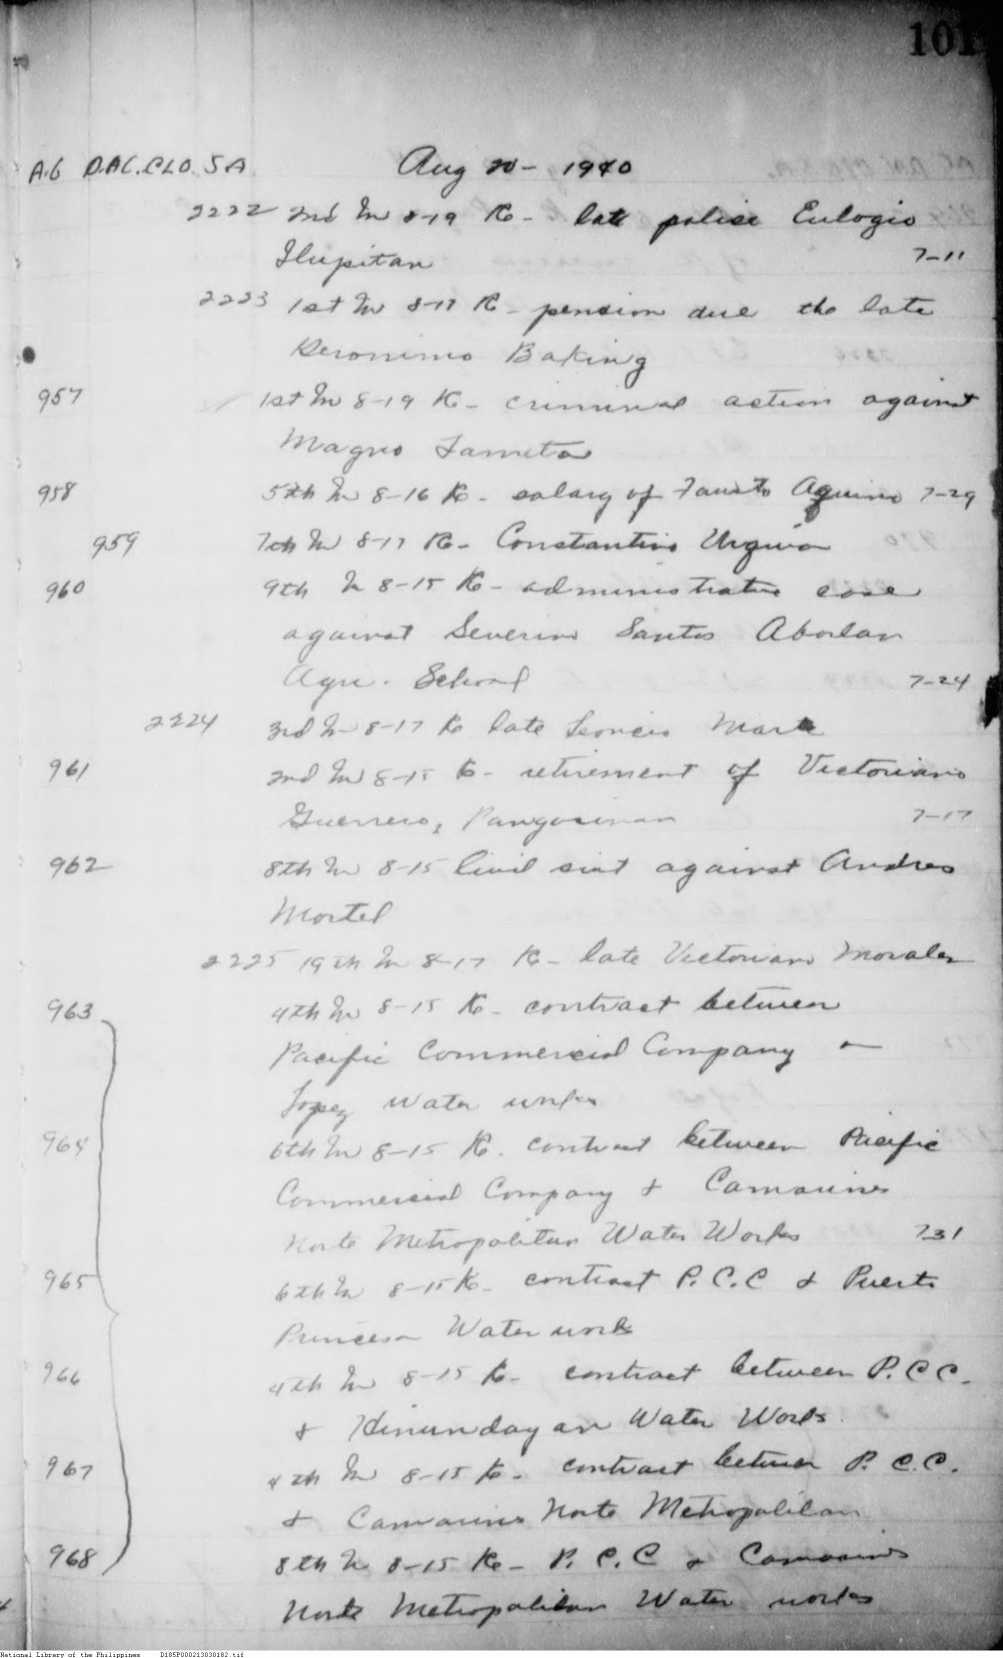 101
A.G D.AC.CLO. S A Aug 20 - 1940
2222 2nd In 8-19 Re - late police Eulogio
Ilupitan 7-11
2223 1st In 8-17 Re - pension due the late
Geronimo Baking
957 1st In 8-19 Re - criminal action against
Magno
958 5th In 8-16 Re - salary of Fausto Aquino 7-29
959 7th In 8-17 Re - Constantino
960 9th In 8-15 Re - administrative case
against Severino Santos Aborlan
Agri. School 7-24
2224 3rd In 8-17 Re late Leoncio
961 2nd In 8-15 Re - retirement of Victoriano
Guerrero, Pangasinan 7-17
962 8th In 8-15 Civil suit against Andres
Mortel
2225 19th In 8-17 Re - late Victoriano Morales
963 4th In 8-15 Re - contract between
Pacific Commercial Company &
Lopez Water works
964 6th In 8-15 Re. contract between Pacific
Commercial Company & Camarines
Norte Metropolitan Water Works 7-31
965 6th In 8-15 Re - contract P.C.C & Puerto
Princesa Water works
966 4th In 8-15 Re - contract between P.C.C.
& Hinundayan Water Works
967 4th In 8-15 Re - contract between P.C.C.
& Camarines Norte Metropolitan
968 8th In 8-15 Re - P.C.C & Camarines
Norte Metropolitan Water works
National Library of the Philippines D185P000213030182.tif